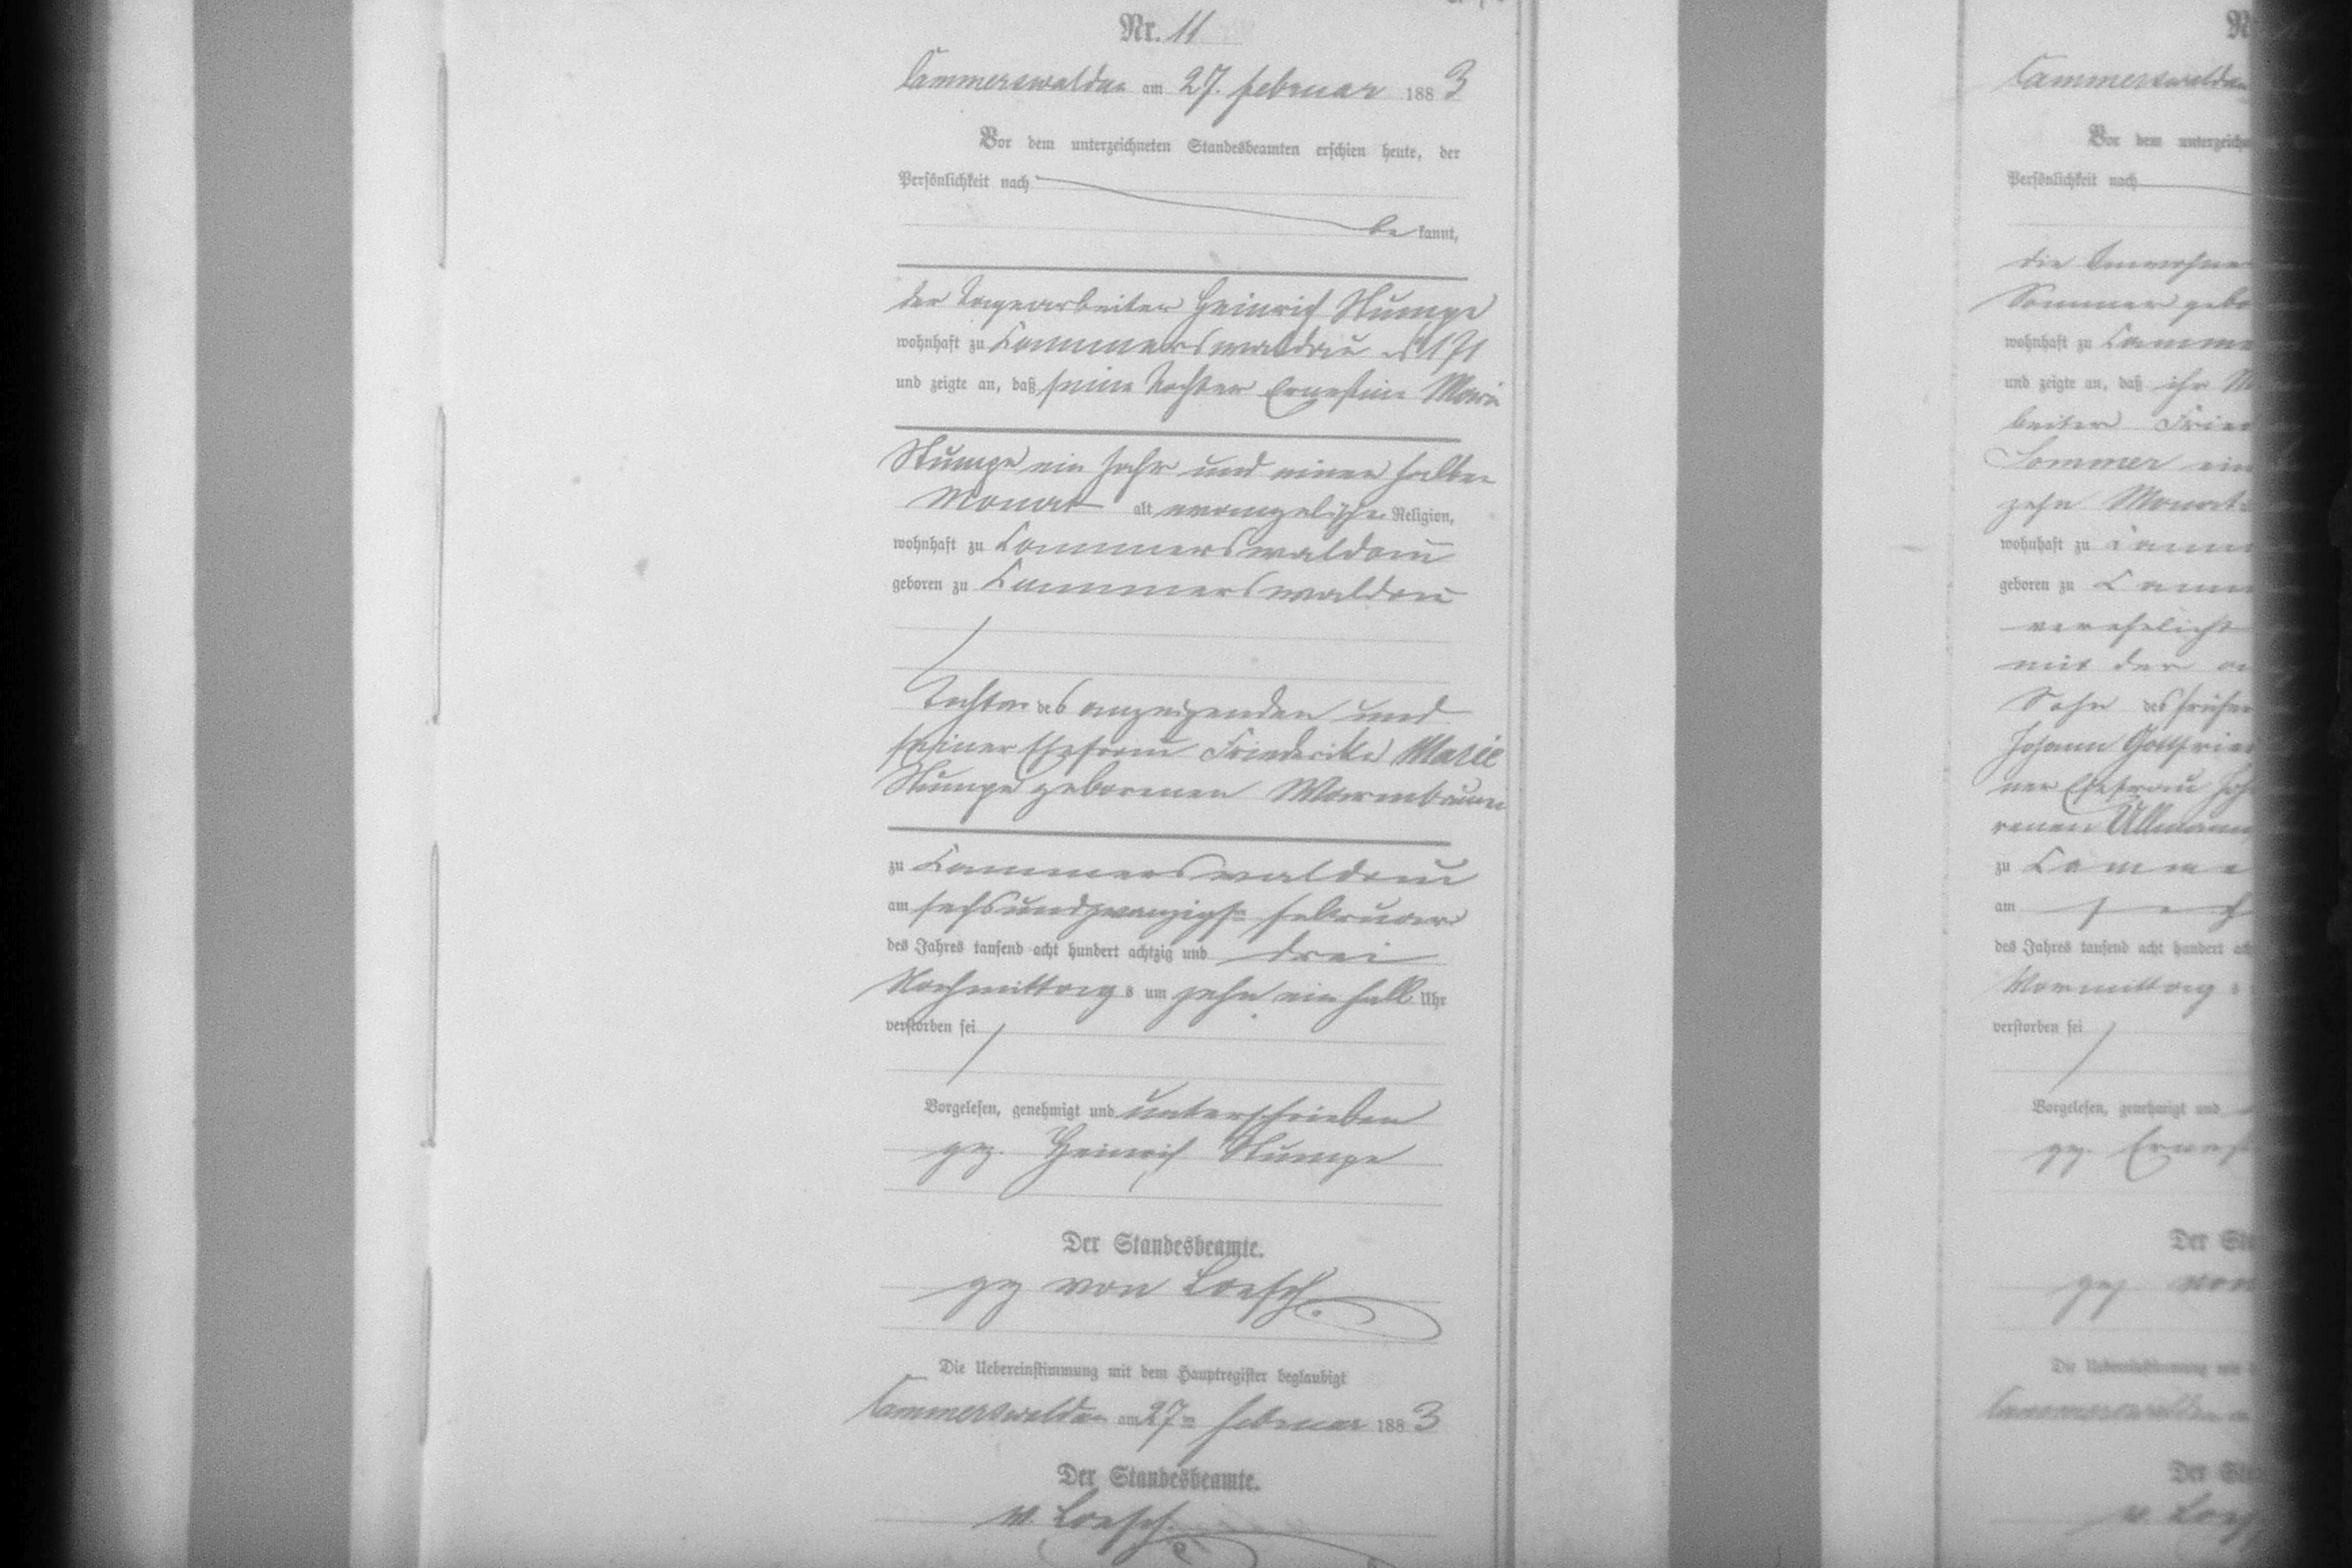 Nr. 11
Cammerswaldau am 27. Februar 1883
Vor dem unterzeichneten Standesbeamten erschien heute, der
Persönlichkeit nach
bekannt,
der Tagearbeiter Heinrich Stumpe
wohnhaft zu Cammerswaldau No 171
und zeigte an, daß seine Tochter Ernestine Marie
Stumpe ein Jahr und einen halben
Monat alt evangelischer Religion,
wohnhaft zu Cammerswaldau
geboren zu Cammerswaldau
Tochter des anzeigenden und
seiner Ehefrau Friederike Marie
Stumpe geborenen Warmbrunn
zu Cammerswaldau
am sechsundzwanzigsten Februar
des Jahres tausend acht hundert achtzig und drei
Nachmittags um zehn ein halb Uhr
verstorben sei
Vorgelesen, genehmigt und unterschrieben
gez. Heinrich Stumpe
Der Standesbeamte.
gez von Loesch.
Die Uebereinstimmung mit dem Hauptregister beglaubigt
Cammerswaldau am 27ten Februar 1883
Der Standesbeamte.
v. Loesch.
Cammerswaldau
Vor dem
Persönlichkeit nach
die
Sommer
wohnhaft zu
und zeigte an, daß ihr
beiter
Sommer
zehn
wohnhaft zu
geboren zu
verehelicht
mit der
Sohn des
Johann
ner Ehefrau
renen Ullmann
zu
am
des Jahres tausend acht hundert
Vormittags
verstorben sei
Vorgelesen, genehmigt und
gez.
Der
gez von
Die
Der
v.